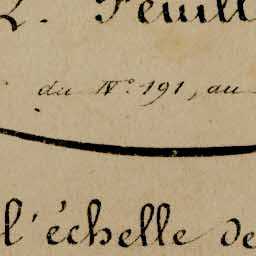 2. Feuill
du N.° 191, au
l'échelle de